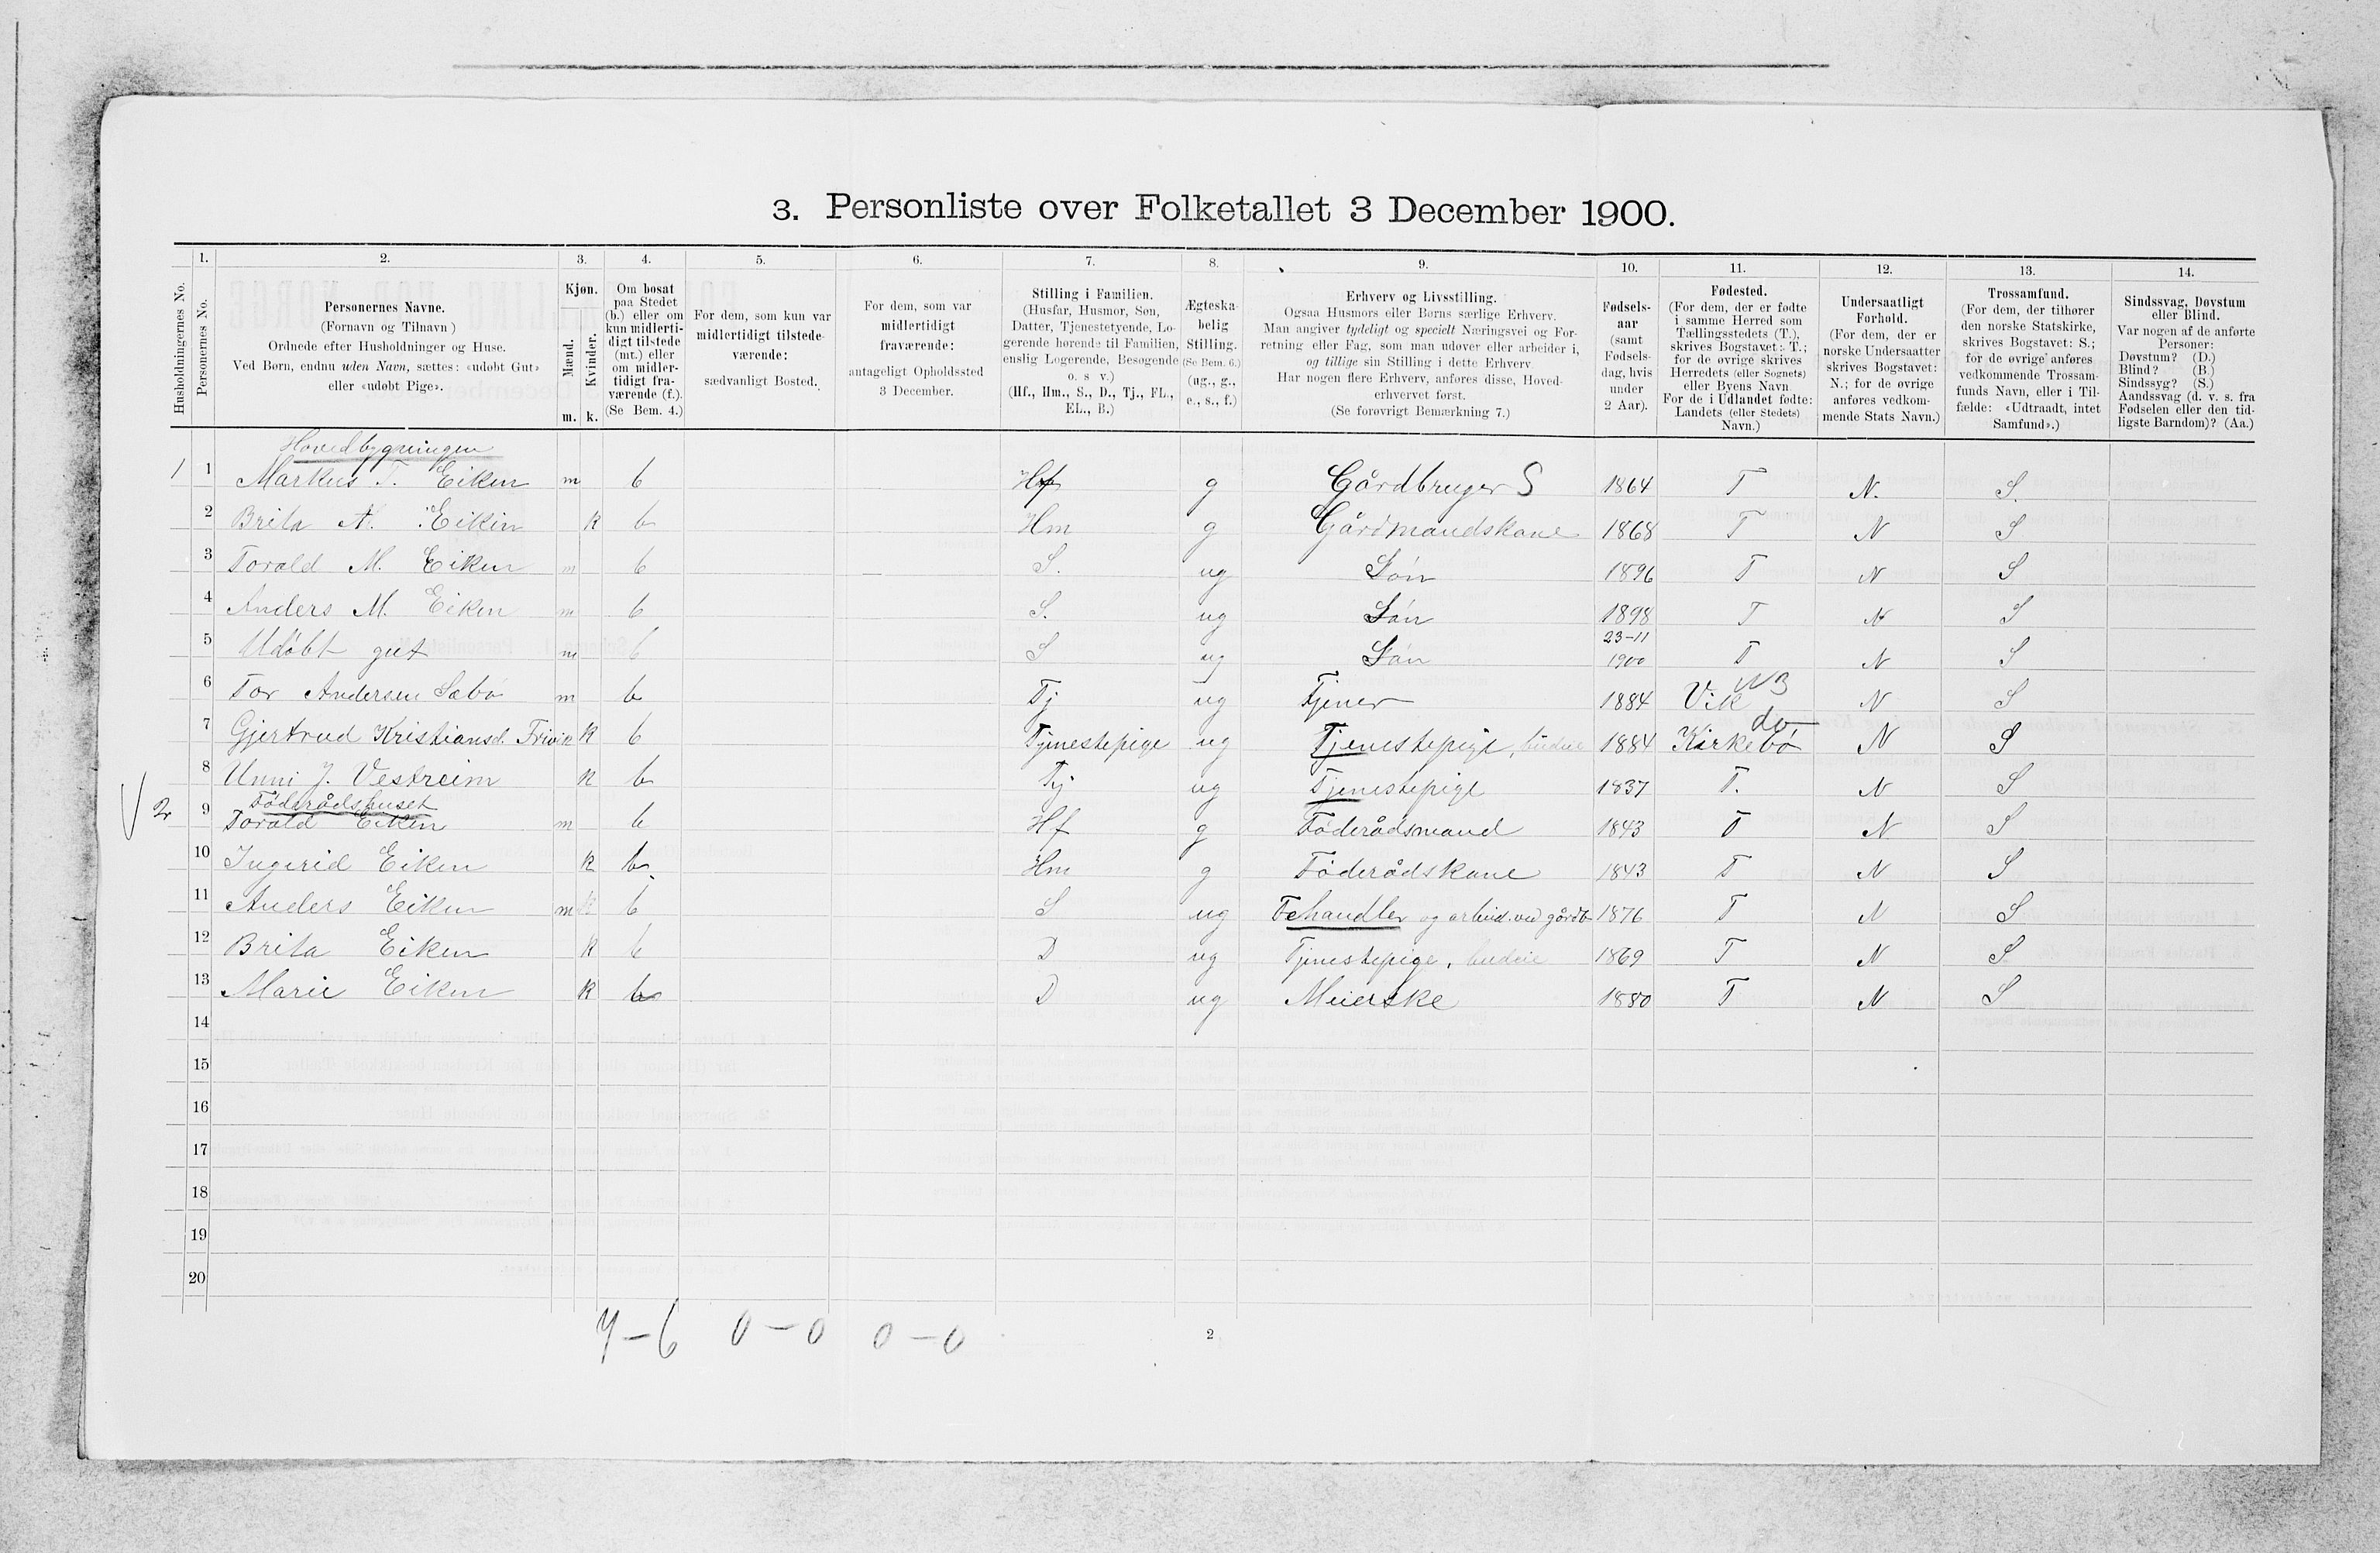 3. Personliste over Folketallet 3 December 1900.
1. 2. 3. 4. 5. 6. 7. 8. 9. 10. 11. 12. 13. 14.
Husholdningernes No.
Personernes No.
Personernes Navne.
(Fornavn og Tilnavn)
Ordnede efter Husholdninger og Huse.
Ved Børn, endnu uden Navn, sættes: «udøbt Gut»
eller «udøbt Pige».
Kjøn.
Mænd.
Kvinder.
m. k.
Om bosat
paa Stedet
(b.) eller om
kun midlerti-
digt tilstede
(mt.) eller
om midler-
tidigt fra-
værende (f.).
(Se Bem. 4.)
For dem, som kun var
midlertidigt tilstede-
værende:
sædvanligt Bosted.
For dem, som var
midlertidigt
fraværende:
antageligt Opholdssted
3 December.
Stilling i Familien.
(Husfar, Husmor, Søn,
Datter, Tjenestetyende, Lo-
gerende hørende til Familien,
enslig Logerende, Besøgende
o. s. v.)
(Hf., Hm., S., D., Tj., FL.,
EL., B.)
Ægteska-
belig
Stilling.
(Se Bem. 6.)
(ug., g.,
e., s., f.)
Erhverv og Livsstilling.
Ogsaa Husmors eller Børns særlige Erhverv.
Man angiver tydeligt og specielt Næringsvei og For-
retning eller Fag, som man udøver eller arbeider i,
og tillige sin Stilling i dette Erhverv.
Har nogen flere Erhverv, anføres disse, Hoved-
erhvervet først.
(Se forøvrigt Bemærkning 7.)
Fødsels-
aar
(samt
Fødsels-
dag, hvis
under
2 Aar).
Fødested.
(For dem, der er fødte
i samme Herred som
Tællingsstedets (T.),
skrives Bogstavet: T.;
for de øvrige skrives
Herredets (eller Sognets)
eller Byens Navn.
For de i Udlandet fødte:
Landets (eller Stedets)
Navn.)
Undersaatligt
Forhold.
(For dem, der er
norske Undersaatter
skrives Bogstavet:
N.; for de øvrige
anføres vedkom-
mende Stats Navn.)
Trossamfund.
(For dem, der tilhører
den norske Statskirke,
skrives Bogstavet: S.;
for de øvrige anføres
vedkommende Trossam-
funds Navn, eller i Til-
fælde: «Udtraadt, intet
Samfund».)
Sindssvag, Døvstum
eller Blind.
Var nogen af de anførte
Personer:
Døvstum? (D.)
Blind? (B.)
Sindssyg? (S.)
Aandssvag (d. v. s. fra
Fødselen eller den tid-
ligste Barndom)? (Aa.)
Hovedbygningen
1 1 Markus T. Eiken m b Hf g Gårdbruger S 1864 T N. S.
2 Brita A. Eikin k b Hm g Gårdmandskone 1868 T N S
3 Torald M. Eiken m b S. ug Søn 1896 T N S
4 Anders M. Eiken m b S. ug Søn 1898 T N S
5 Udøbt gut m b S ug Søn 23-11 1900 T N S
6 Tor Andersen Sæbø m b Tj ug Tjener 1884 Vik N S
7 Gjertrud Kristiansd. k b Tjenestepige ug Tjenestepige, budeie 1884 Kirkebø do N S
8 Unni J. Vestreim k b Tj ug Tjenestepige 1837 T. N S
Föderådshuset
2 9 Torald Eiken m b Hf g Föderådsmand 1843 T N S
10 Ingerid Eiken k b. Hm g Föderådskone 1843 T N S
11 Anders Eiken m b S ug Fehandler og arbeid. ved gårdb 1876 T N S
12 Brita Eiken k b D ug Tjenestepige, budeie 1869 T N S
13 Marie Eiken k b D ug Meierske 1880 T N S
14
15
16
17
18
19
20
7-6 0-0 0-0
2